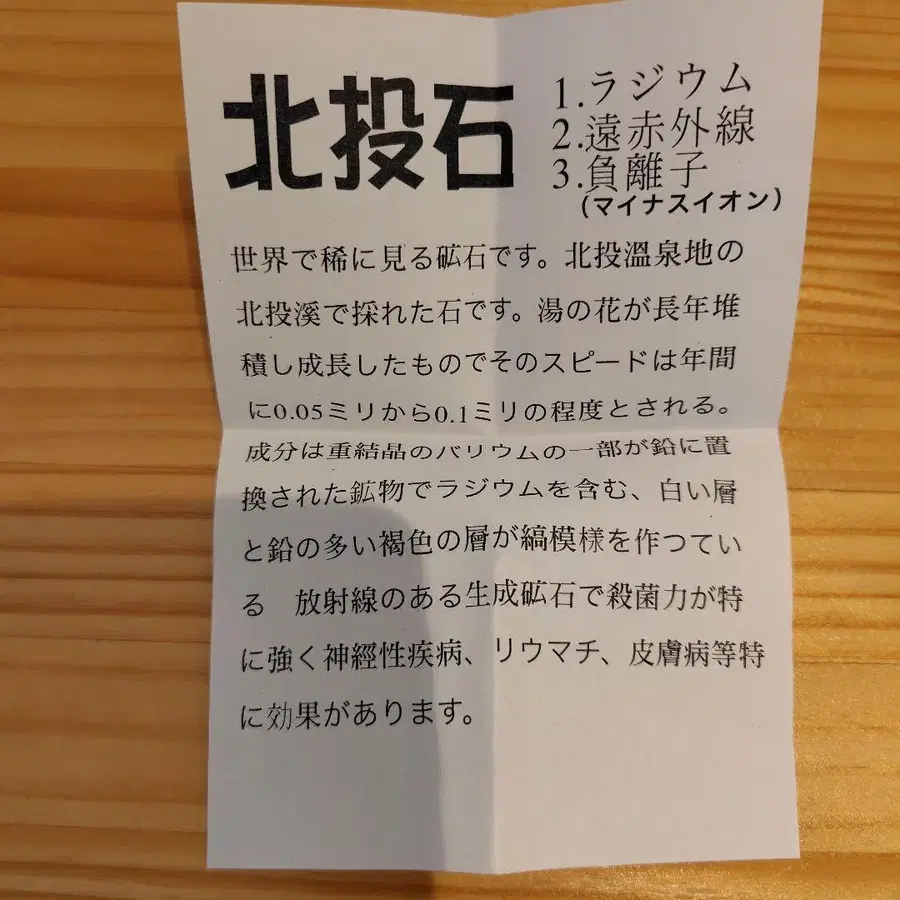 北投石
1.ラジウム
2.遠赤外線
3.負離子
(マイナスイオン)
世界で稀に見る砿石です。北投溫泉地の
北投溪で採れた石です。湯の花が長年堆
積し成長したものでそのスピードは年間
に0.05ミリから0.1ミリの程度とされる。
成分は重結晶のバリウムの一部が鉛に置
換された鉱物でラジウムを含む、白い層
と鉛の多い褐色の層が縞模様を作つてい
る　放射線のある生成砿石で殺菌力が特
に強く神經性疾病、リウマチ、皮膚病等特
に効果があります。